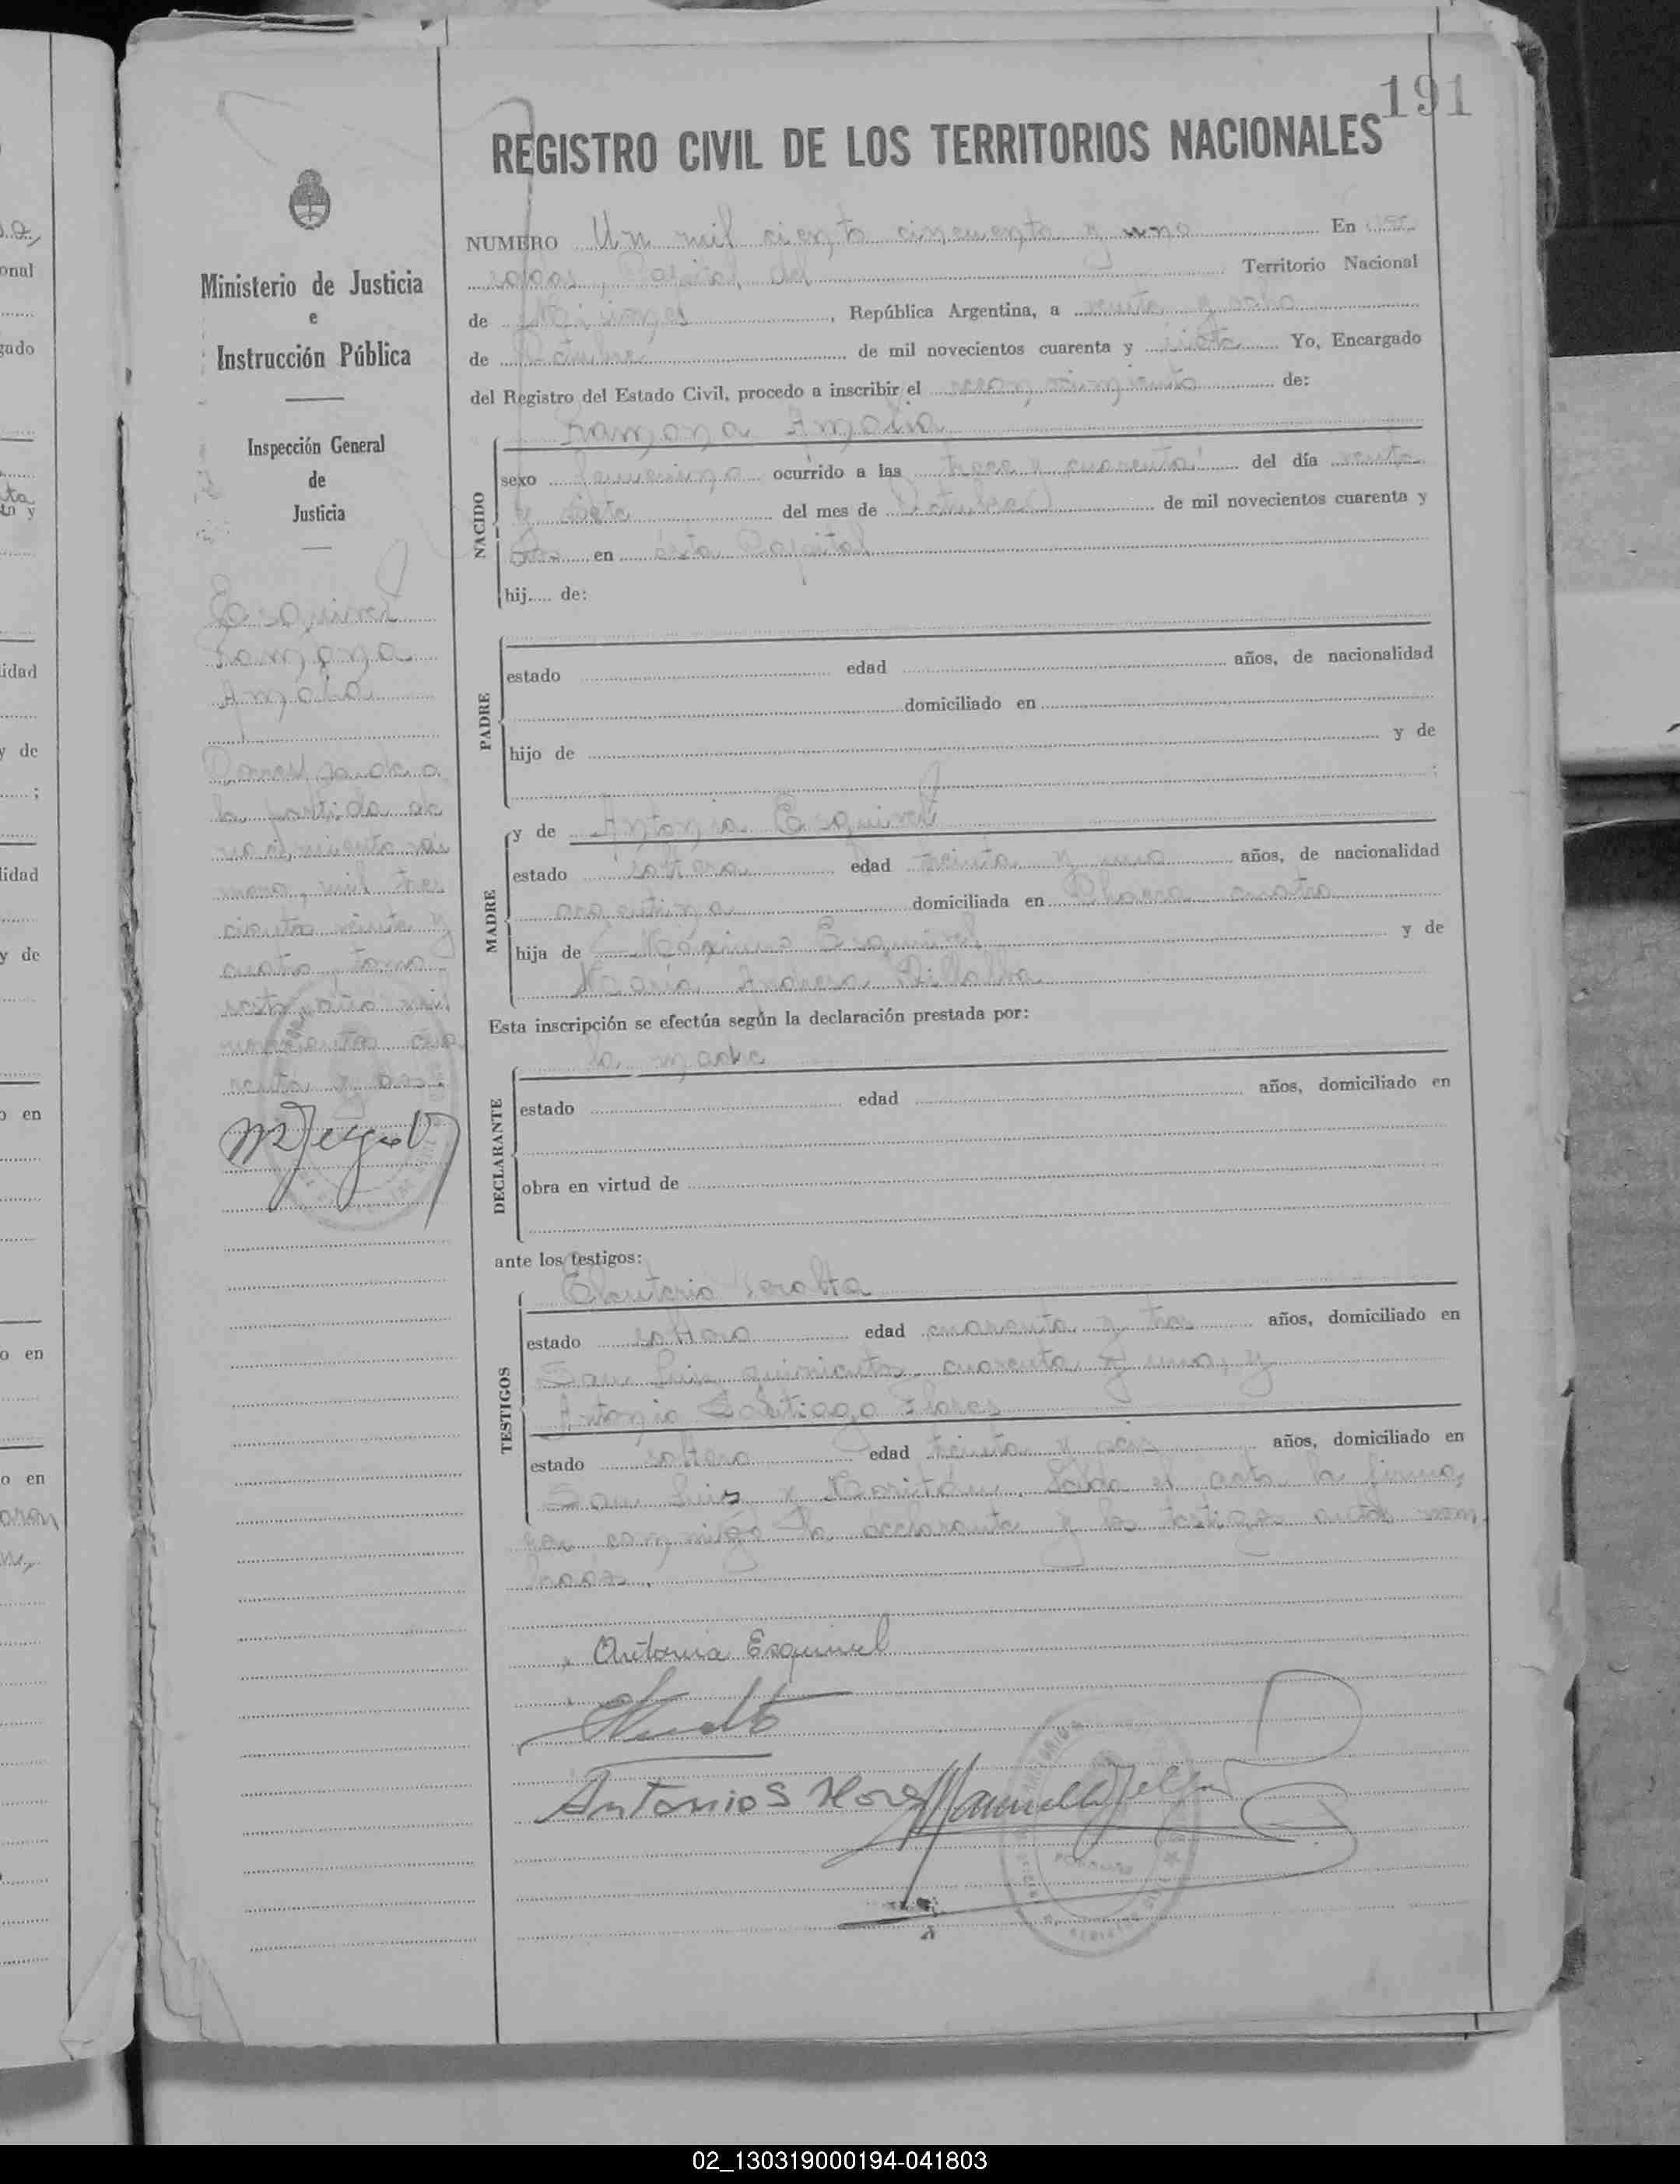 191
REGISTRO CIVIL DE LOS TERRITORIOS NACIONALES
NUMERO Un mil ciento cincuenta y uno En Po
sadas, Capital del Territorio Nacional
de Misiones, República Argentina, a veinte y ocho
de Octubre de mil novecientos cuarenta y siete Yo, Encargado
del Registro del Estado Civil, procedo a inscribir el reconocimiento de:
Ramona Amalia
NACIDO
sexo femenino ocurrido a las trece y cuarenta del día veinte
y siete del mes de Octubre de mil novecientos cuarenta y
dos en ésta Capital
hij..... de:
PADRE
estado edad años, de nacionalidad
domiciliado en
hijo de y de
;
MADRE
y de Antonia Esquivel
estado soltera edad treinta y uno años, de nacionalidad
argentina domiciliada en Chacra cuatro
hija de Máximo Esquivel y de
María Andrea Villalba
Esta inscripción se efectúa según la declaración prestada por:
la madre
DECLARANTE
estado edad años, domiciliado en
obra en virtud de
ante los testigos:
TESTIGOS
Eleuterio Peralta
estado soltero edad cuarenta y tres años, domiciliado en
San Luis quinientos cuarenta y uno, y
Antonio Santiago Flores
estado soltero edad treinta y seis años, domiciliado en
San Luis y Leída el acta la firma
ron conmigo la declarante y los testigos antes nom
brados.
Antonia Esquivel
Antonio S Flores
Ministerio de Justicia
e
Instrucción Pública
Inspección General
de
Justicia
Esquivel
Ramona
Amalia
Corresponde a
la partida de
nacimiento nú
mero, mil tres
cientos veinte y
cuatro, tomo
año mil
novecientos cua
renta y dos.
02_130319000194-041803